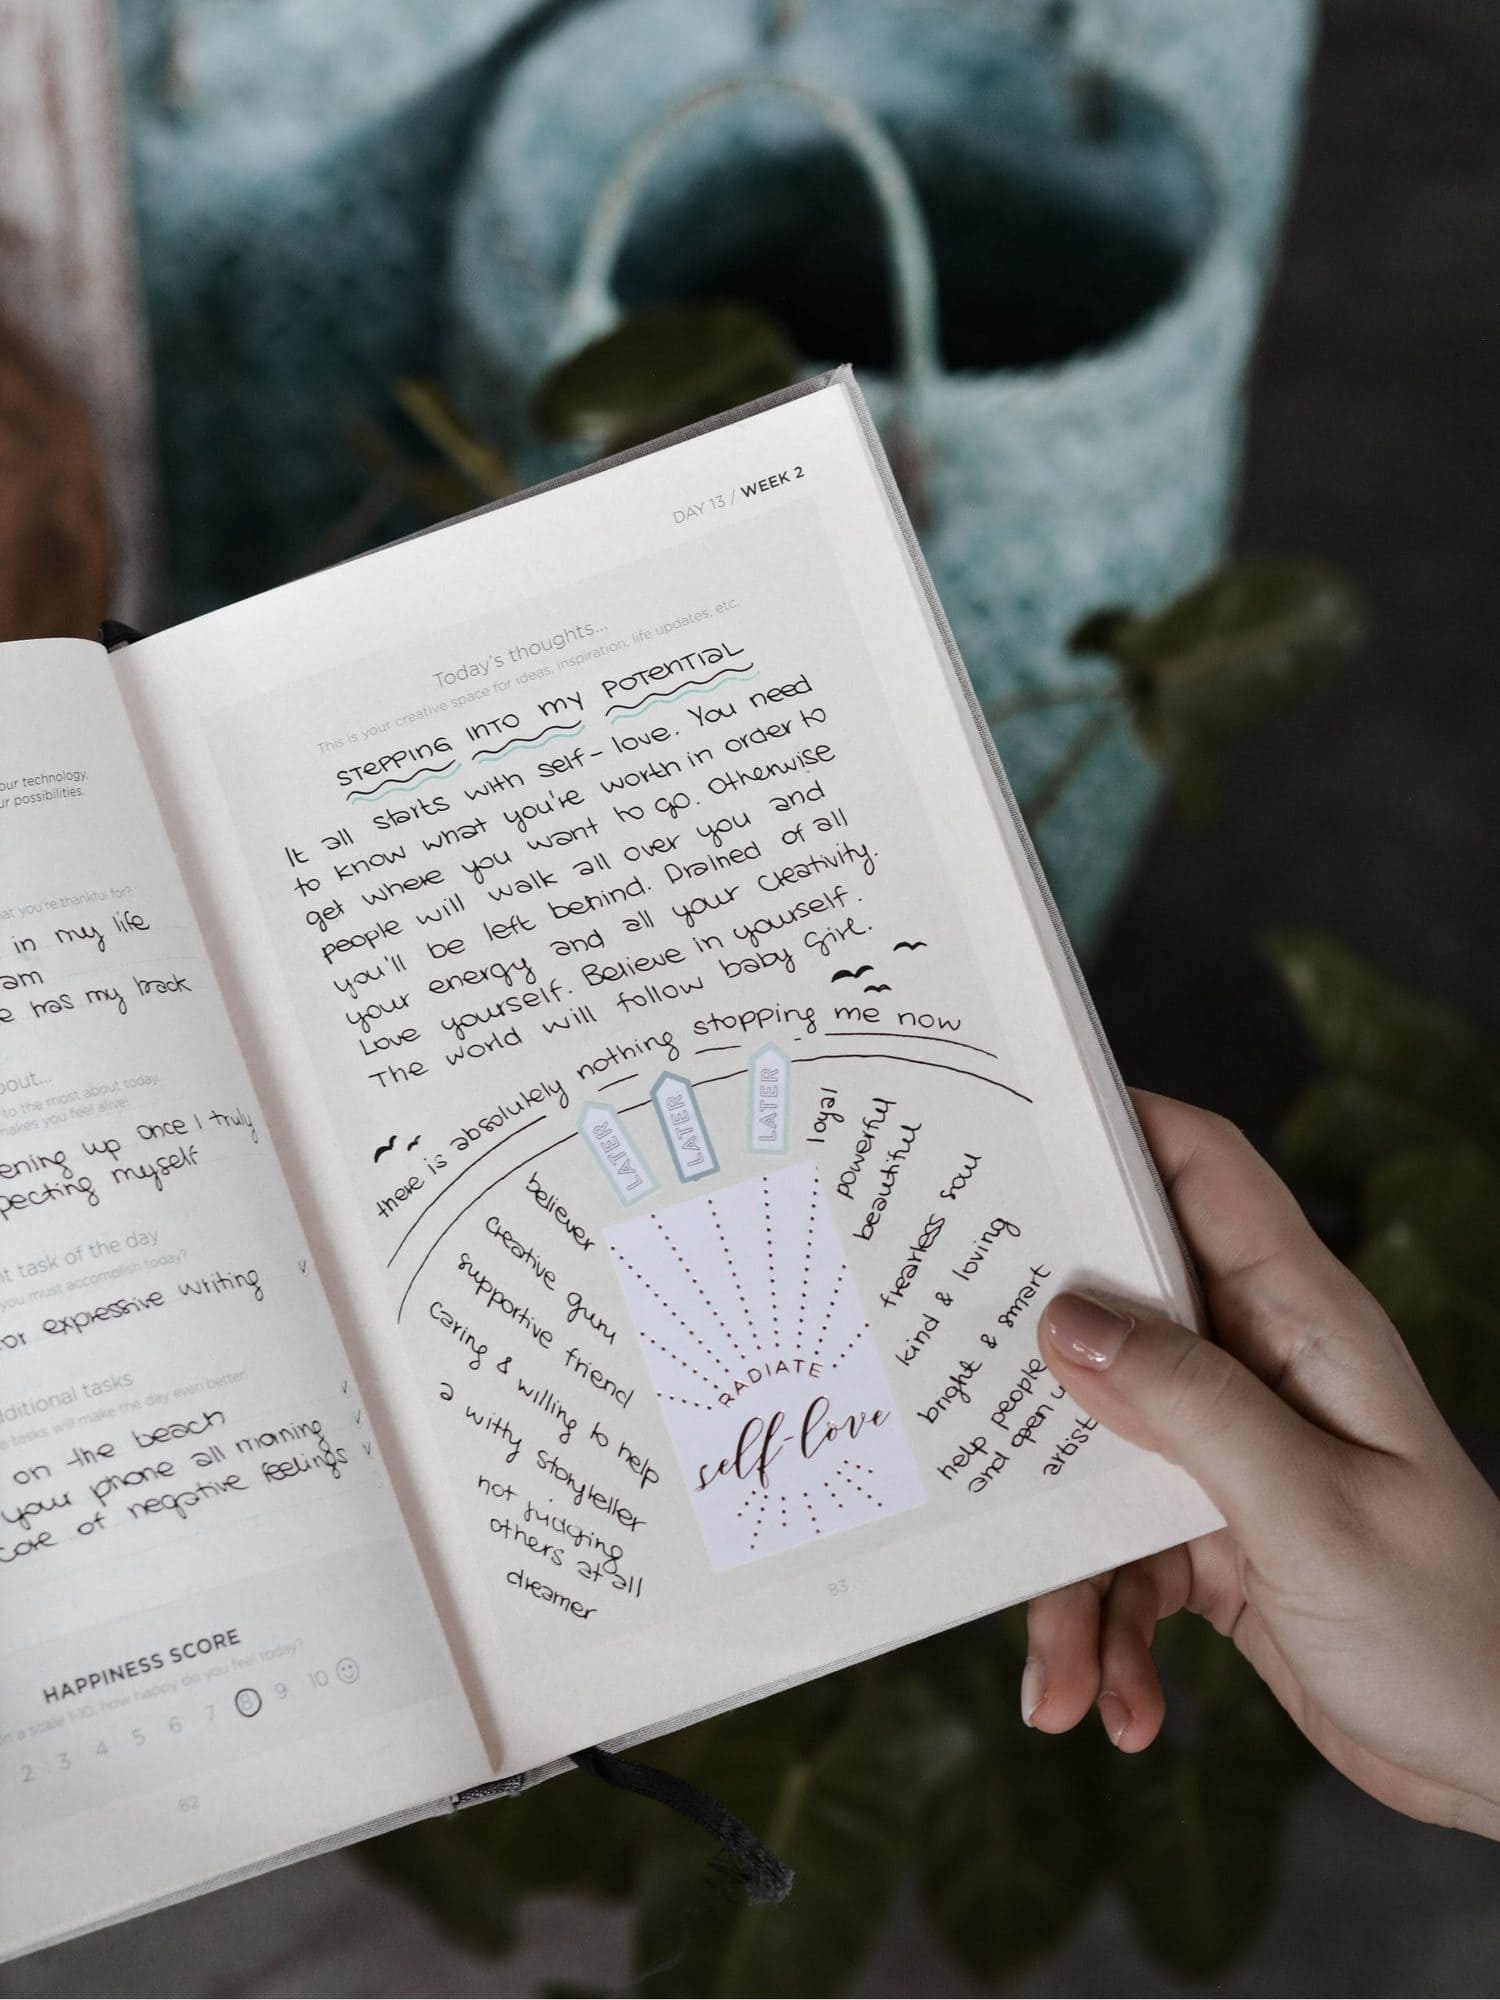 our technology,
ur possibilities.
at you're thankful for?
in my life
am
e has my back
bout...
to the most about today,
makes you feel alive!
ening up once I truly
pecting myself
it task of the day
you must accomplish today?
or expressive writing
dditional tasks
e tasks will make the day even better!
on the beach
your phone all morning
of negative feelings
HAPPINESS SCORE
on a scale 1-10, how happy do you feel today?
2 3 4 5 6 7 8 9 10
82
DAY 13 / WEEK 2
Today's thoughts...
This is your creative space for ideas, inspiration, life updates, etc.
STEPPING INTO MY POTENTIAL
It all starts with self-love. You need
to know what you're worth in order to
get where you want to go. Otherwise
people will walk all over you and
you'll be left behind. Drained of all
your energy and all your creativity.
Love yourself. Believe in yourself.
The world will follow baby girl.
there is absolutely nothing stopping me now
LATER
LATER
LATER
believer
creative guru
supportive friend
caring & willing to help
a witty storyteller
not judging
others at all
dreamer
RADIATE
self-love
loyal
powerful
beautiful
frearless soul
kind & loving
bright & smart
help people
and open u
artist
83